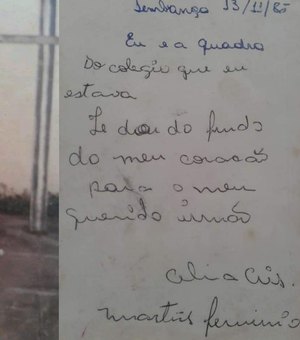 Lembrança 13/11/85
Eu e a quadra
Do colegio que eu
estava
Te dou do fundo
do meu coraçaõ
para o meu
querido irmão
Celia Cris.
Martins